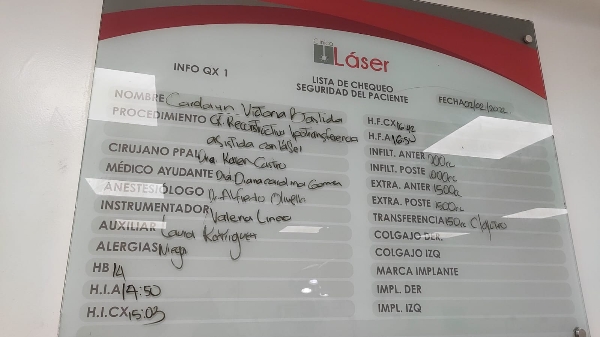 Láser
INFO QX 1
LISTA DE CHEQUEO
SEGURIDAD DEL PACIENTE
FECHA 02/02/2022
NOMBRE Victoria
PROCEDIMIENTO Cx. Reconstructiva lipotransferencia
asistida con láser
CIRUJANO PPAL Dra. Karen Castro
MÉDICO AYUDANTE Dra. Diana carolina
ANESTESIÓLOGO Dr. Alfredo
INSTRUMENTADOR Valeria
AUXILIAR Laura Rodriguez
ALERGIAS Niega
HB 14
H.I.A 14:50
H.I.CX 15:03
H.F.CX 16:42
H.F.A 16:50
INFILT. ANTER
INFILT. POSTE
EXTRA. ANTER 1500cc
EXTRA. POSTE 1500cc
TRANSFERENCIA 150cc
COLGAJO DER.
COLGAJO IZQ
MARCA IMPLANTE
IMPL. DER
IMPL. IZQ